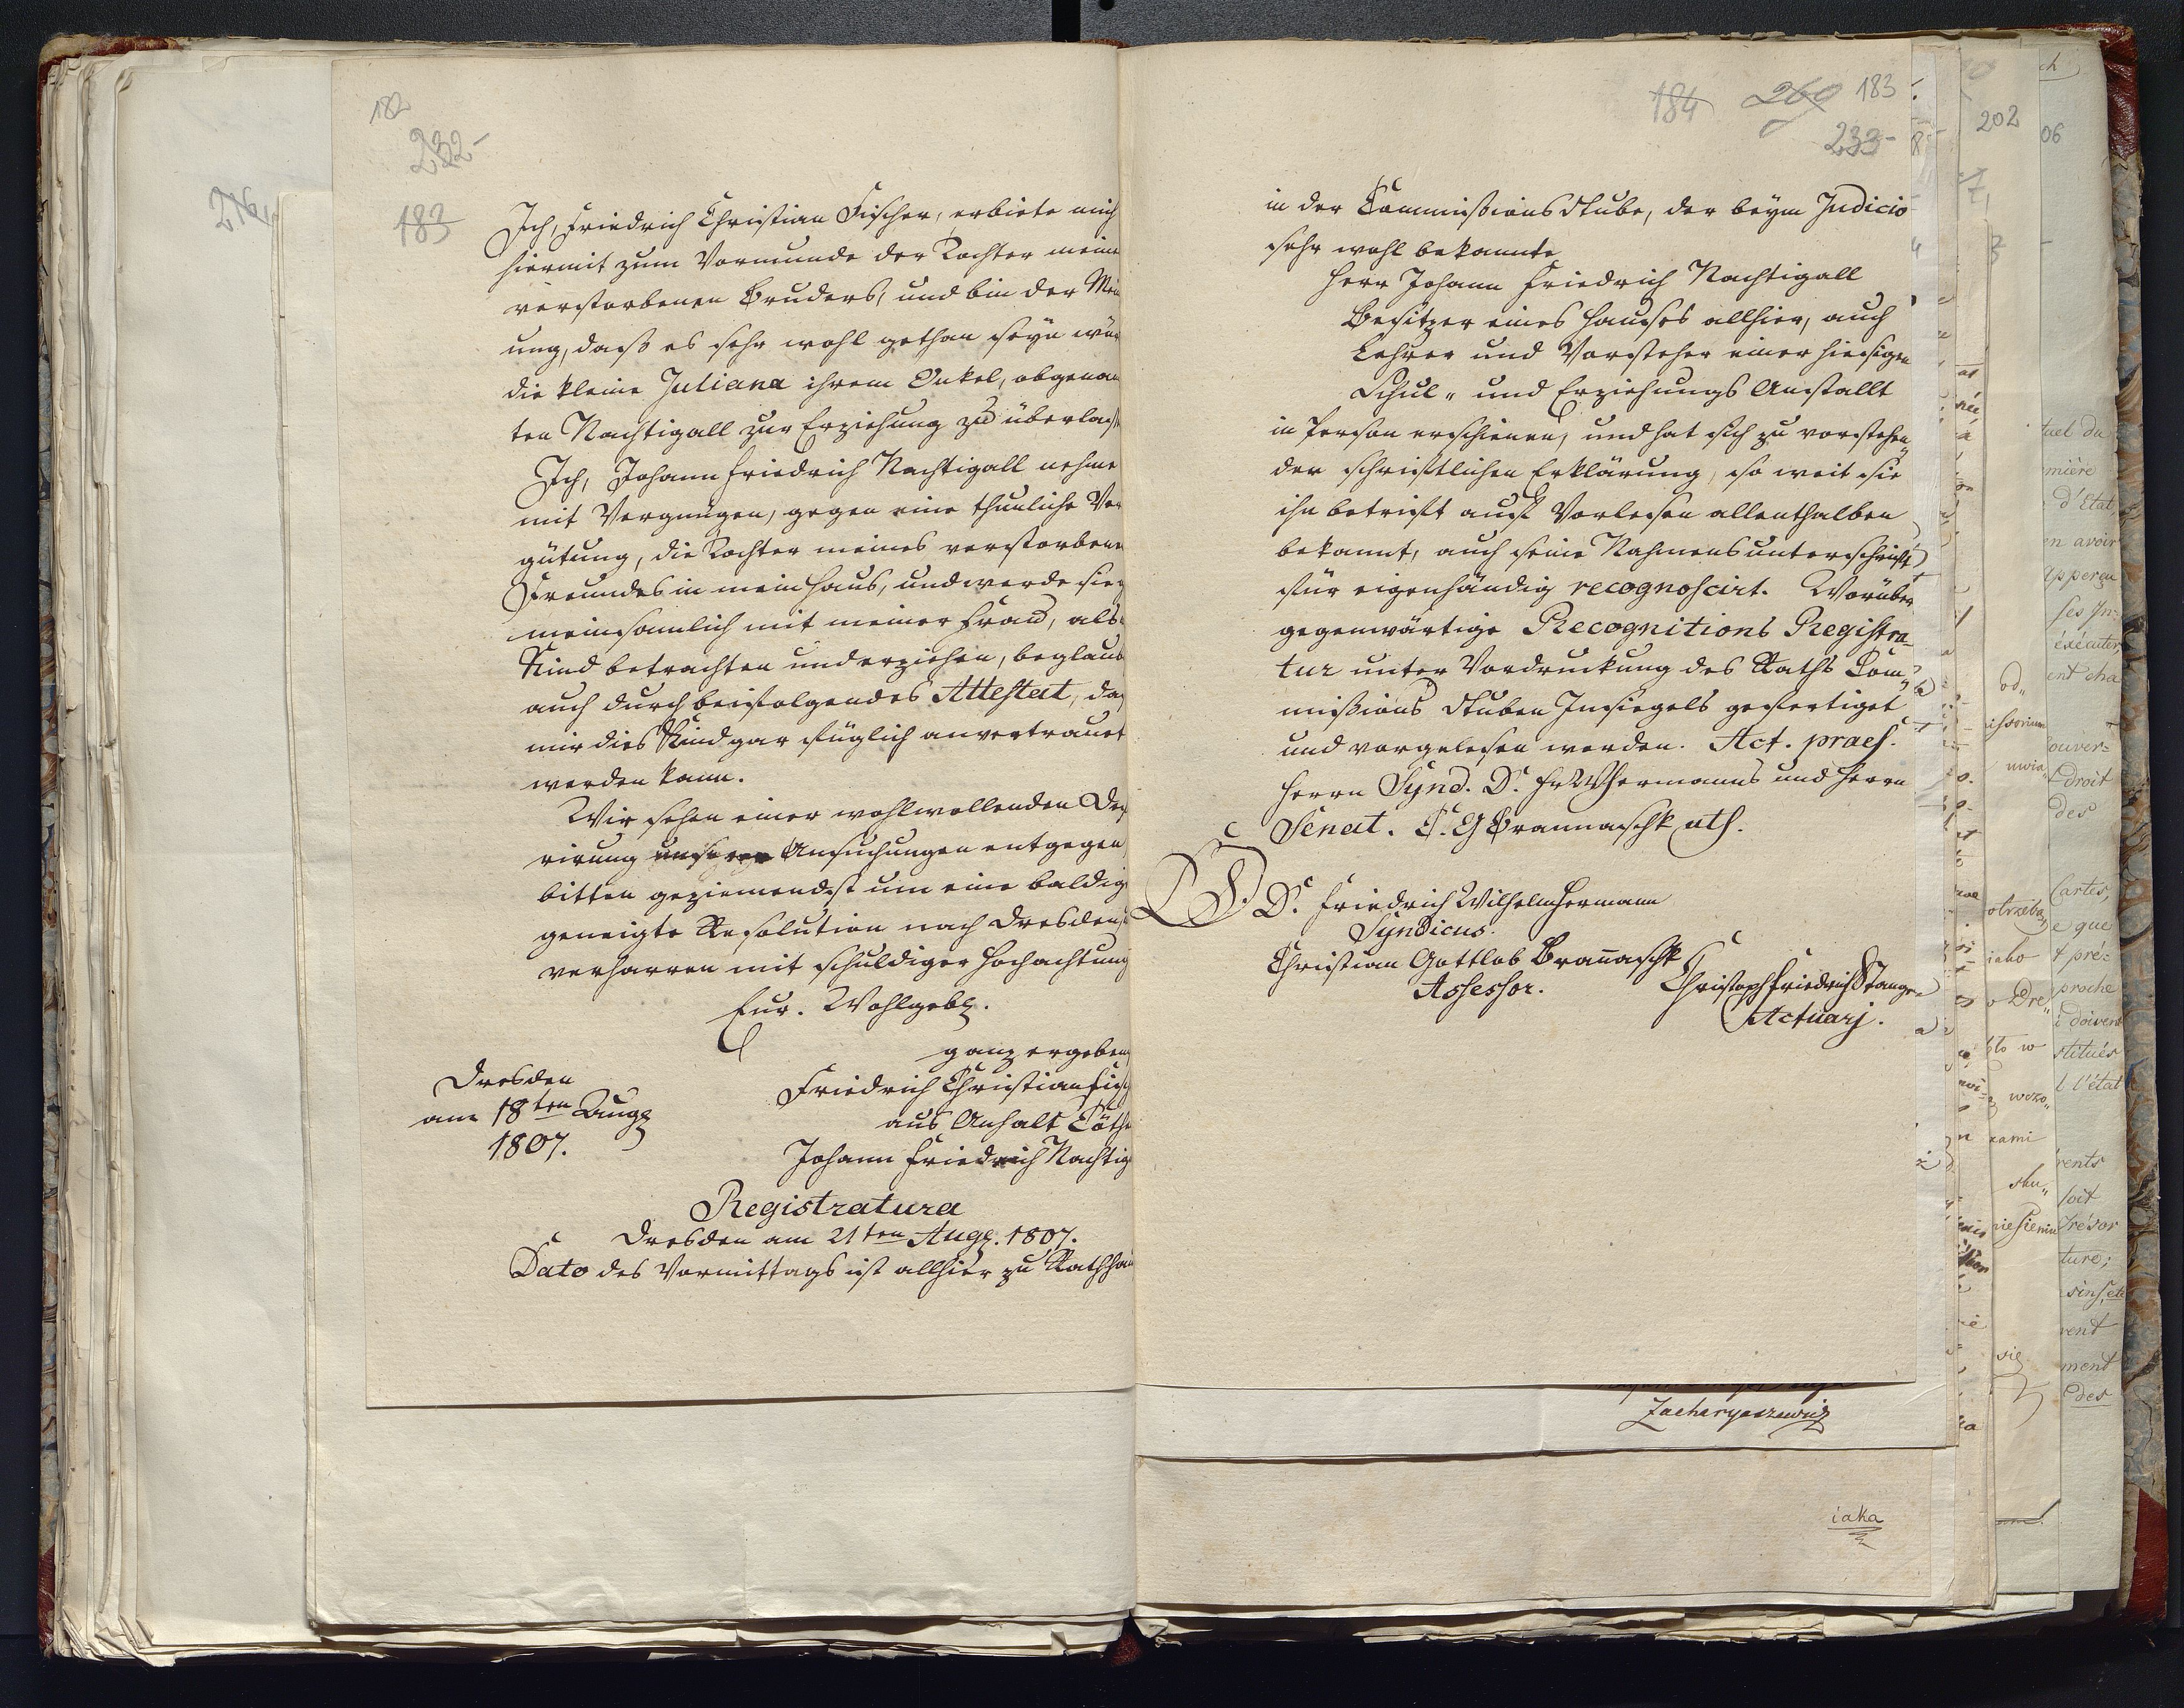 182
232-
183
216
Ich, Friedrich Christian Fischer, erbiete mich
hiermit zum Vormunde der Tochter meine
verstorbenen Bruders, und bin der Mein
ung, daß es sehr wohl gethan seyn wür
die kleine Juliana ihrem Onkel, obgenan
ten Nachtigall zur Erziehung zu überlaß
Ich, Johann Friedrich Nachtigall nehme
mit Vergnügen, gegen eine thunliche Ver
gütung, die Tochter meines verstorbene
Freundes in mein Haus, und werde sie g
meinsamlich mit meiner Frau, als
Kind betrachten und erziehen, beglaub
auch durch beifolgendes Attestat, daß
mir dies Kind gar füglich anvertrauet
werden kann.
Wir sehen einer wohlwollenden Def
rirung unserer Ansuchungen entgegen
bitten geziemendst um eine baldig
geneigte Resolution nach Dresden,
verharren mit schuldiger Hochachtung
Eur. Wohlgeb.
ganz ergeben
Dresden
am 18ten Aug.
1807.
Friedrich Christian Fisch
aus Anhalt Cöth
Johann Friedrich Nachtig
Registratura
Dresden am 21ten Aug. 1807.
Dato des Vormittags ist allhier zu Rathhau
184 260 183
233-
in der Commißions Stube, der beym Judicio
sehr wohl bekannte
Herr Johann Friedrich Nachtigall
Besitzer eines Hauses allhier, auch
Lehrer und Vorsteher einer hiesigen
Schul- und Erziehungs Anstallt
in Person erschienen, und hat sich zu vorstehen-
der schriftlichen Erklärung, so weit sie
ihn betrifft auf Vorlesen allenthalben
bekannt, auch seine Nahmensunterschrift
für eigenhändig recognoscirt. Worüber
gegenwärtige Recognitions Registra-
tur unter Vordruckung des Raths Com-
mißions Stuben Insiegels gefertiget
und vorgelesen worden. Act. praes.
Herrn Synd. D. Fr W Hermanns und Herrn
Senat. C. G Braunaschk uts.
L. S. D. Friedrich Wilhelm Hermann
Syndicus.
Christian Gottlob Braunaschk
Assessor.
Christoph Friedrich Stange
Actuarj.
Zacharyaszewicz
iaka
202
06
tuel du
mière
d'Etat,
en avoir
apperçu
ses In-
éxécuter
ent cha
ouver-
droit
des
Cartes,
e que
t pré-
proche
i doivent
stitués
l'état
rents
soit
Trésor
ture;
sins, etc
rent
ment
des